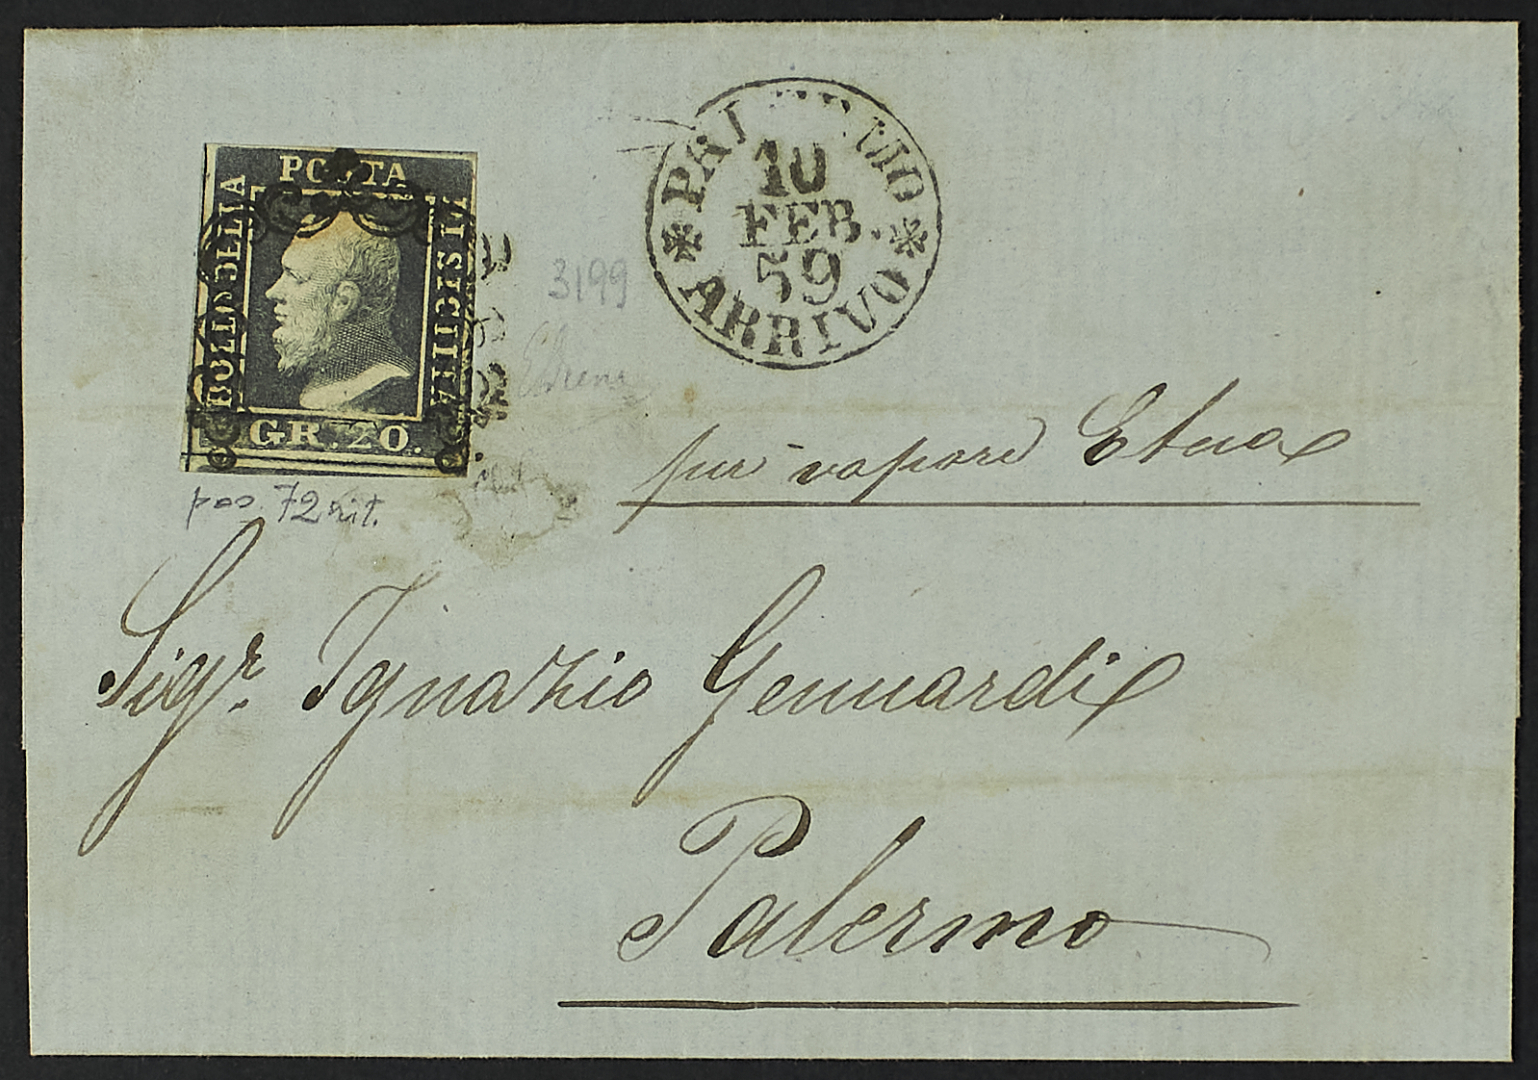 POSTA
BOLLO DELLA
DI SICILIA
GR. 20.
PALERMO
10
FEB.
59
ARRIVO
3199
per vapore Etna
pos. 72 rit.
Sigr. Ignazio Gennardi
Palermo